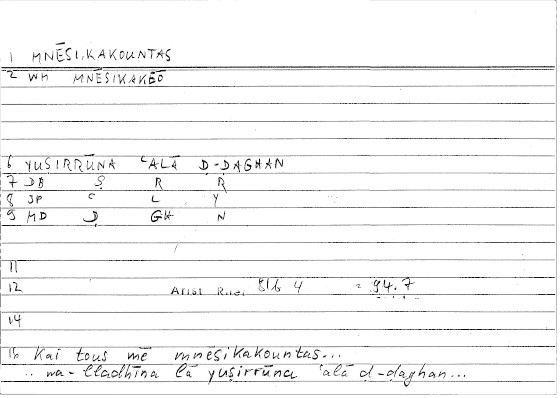 1 MNĒSI.KAKOUNTAS
2 WH MNĒSIKAKEŌ
6 YUṢIRRŪNA ʿALĀ Ḍ-ḌAGHAN
7 DB Ṣ R R
8 JP ʿ L Y
9 MD Ḍ GH N
11
12 Arist Rhet 81b 4 = 94.7
14
16 Kai tous mē mnēsikakountas...
.. wa-lladhīna lā yuṣirrūna ʿalā ḍ-ḍaghan...